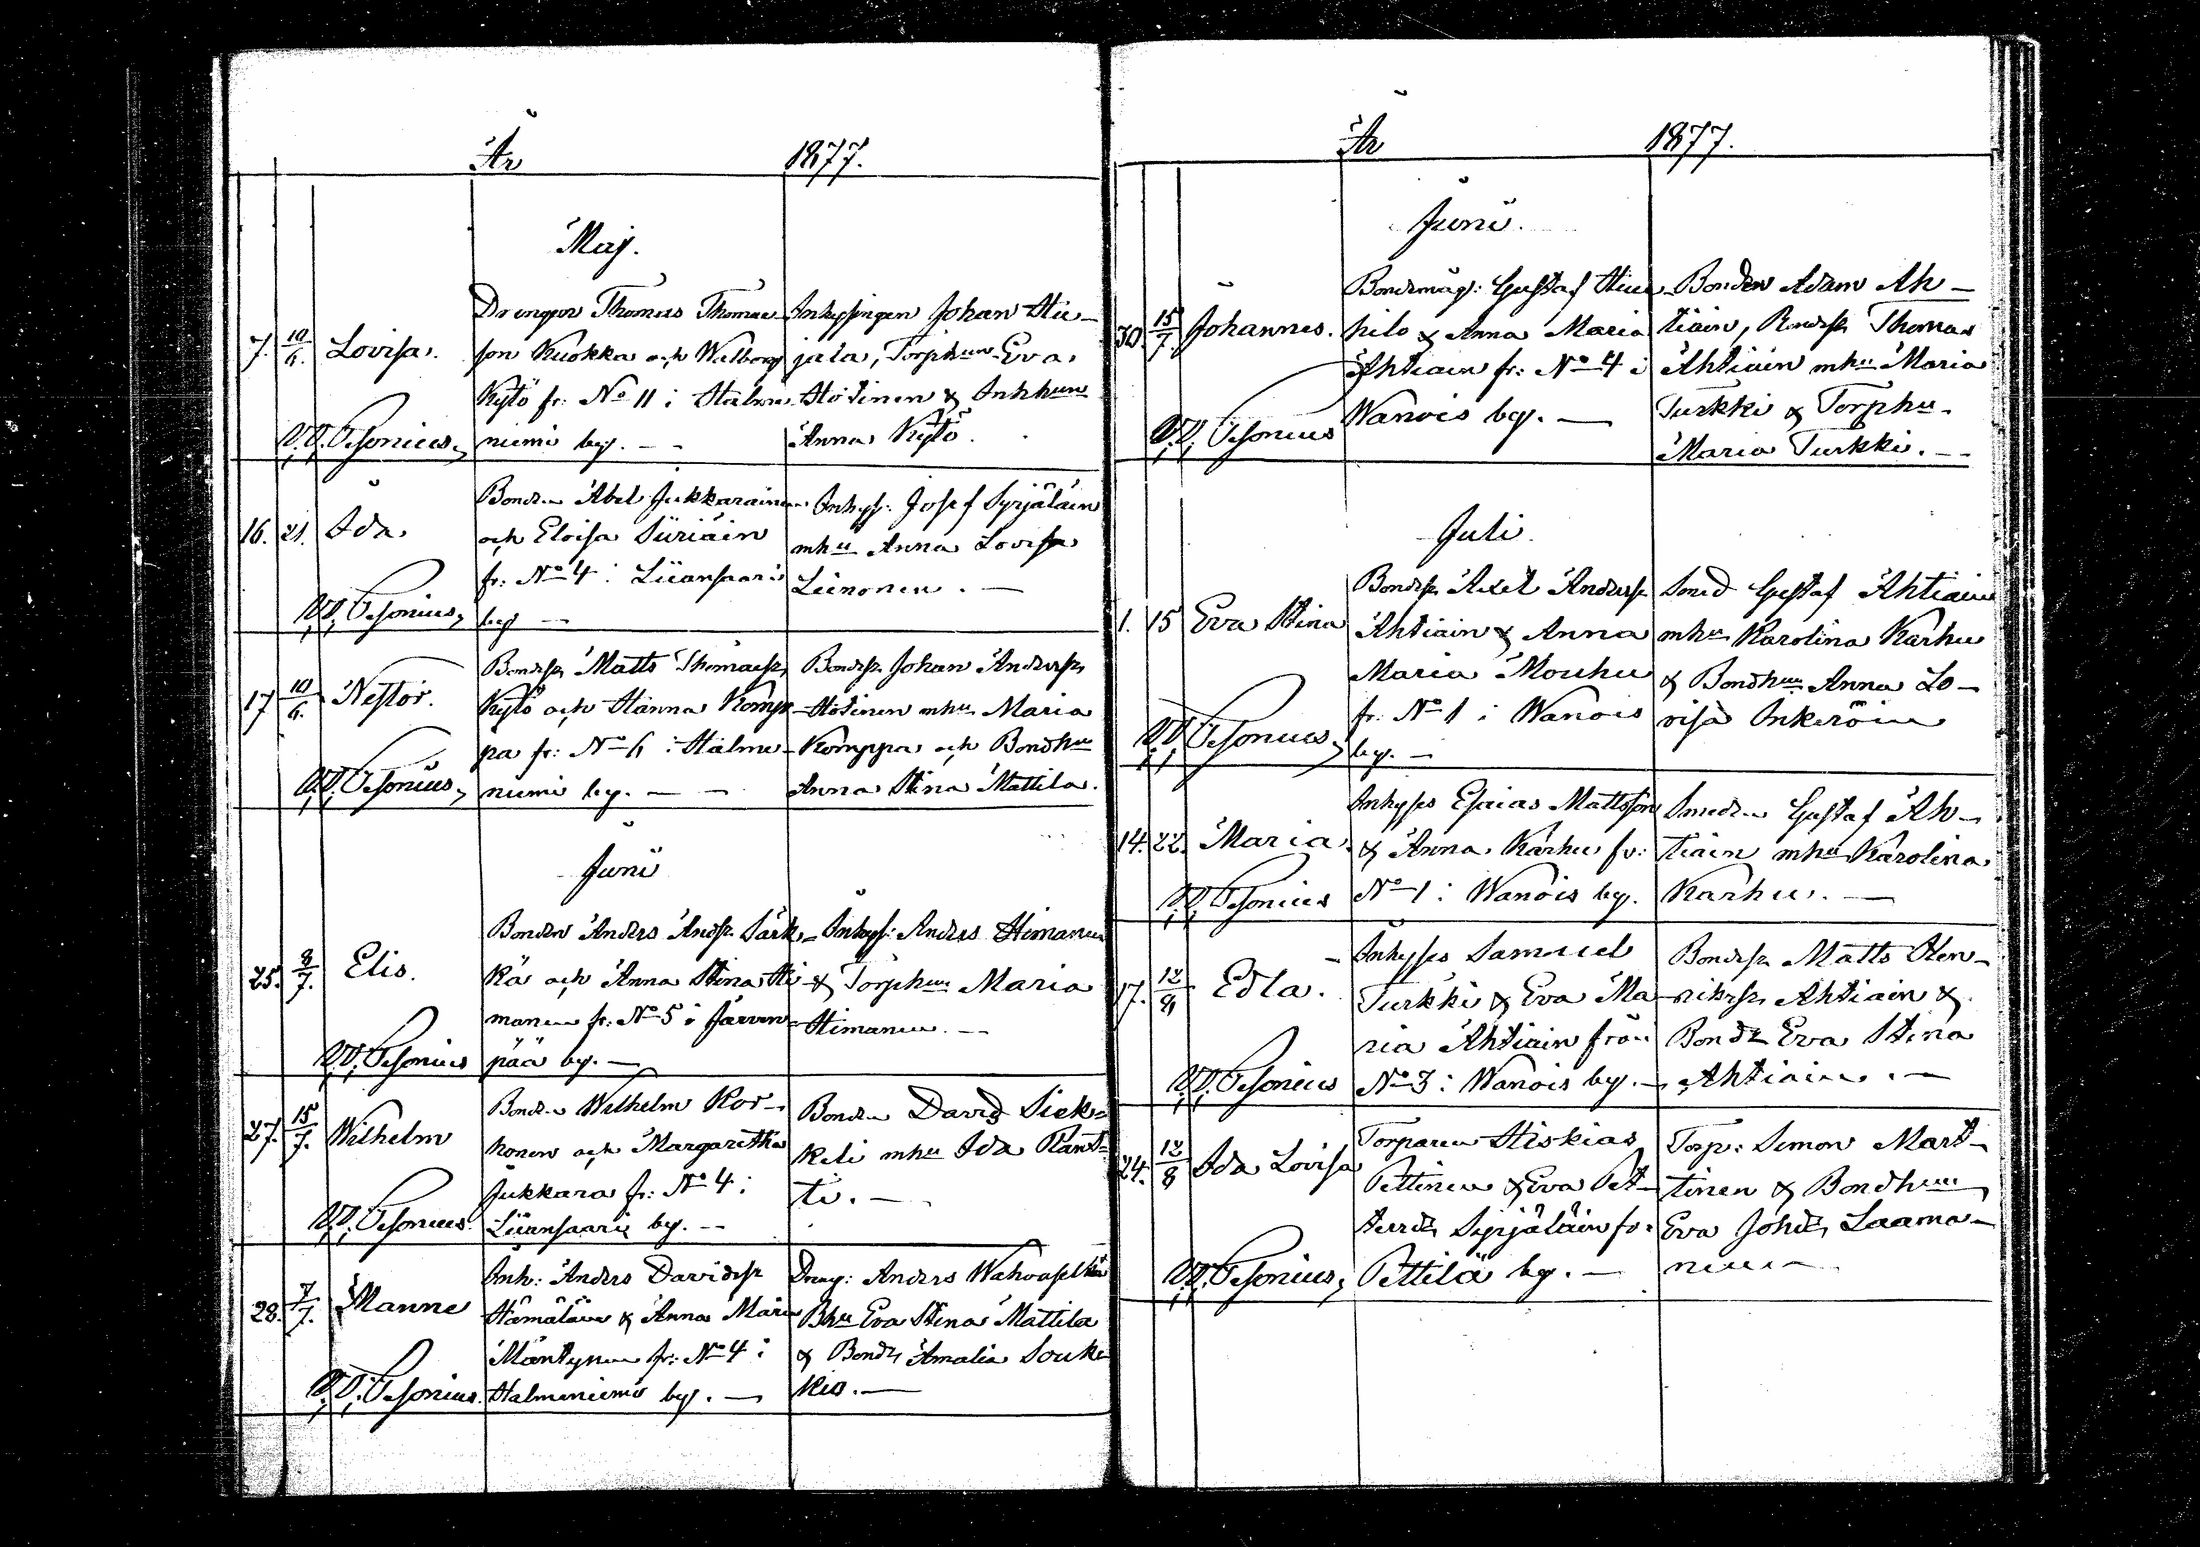 År 1877.
Maj.
7. 10/6. Lovisa.
Drengen Thomas Thomas-
son Kuokka och Walborg
Kytö fr: No 11 i Halme-
niemi by. —
Inhysingen Johan Hie-
jala, Torphun Eva
Hötinen & Inhhun
Anna Kytö.
V. P. Pesonius
16. 21. Ida
Bonden Abel Jukkarainen
och Eloisa Siiriäin
fr: No 4 i Liiansaari
by —
Inhys: Josef Syrjäläin
mhu Anna Lovisa
Leinonen. —
Pesonius
17 10/6. Nestor.
Bondesn Matts Thomaesn
Kytö och Hanna Komp-
pa fr: No 6 i Halme-
niemi by. — —
Bondesn Johan Andersn
Hötinen mhu Maria
Komppa och Bondhu
Anna Stina Mattila.
Pesonius
Juni
25. 8/7. Elis.
Bonden Anders Andsn Särk-
kä och Anna Stina Hi-
manen fr: No 5 i Järven-
pää by. —
Inhys: Anders Himanen
& Torphun Maria
Himanen. —
Pesonius
27. 15/7. Wilhelm
Bonden Wilhelm Kor-
honen och Margaretha
Jukkara fr: No 4 i
Liiansaari by. —
Bonden David Siek-
keli mhu Ida Rant-
Pesonius
28. 7/7. Manne
Inh: Anders Davidsn
Hämäläin & Anna Maria
Mäntynen fr: No 4 i
Halmeniemi by. —
Dreng: Anders Wahvaselkä
Bhu Eva Stina Mattila
& Bondd Amalia Souk-
kio. —
Pesonius.
År 1877.
Juni.
30 15/7 Johannes.
Bondemåg: Gustaf
& Anna Maria
Ahtiain fr: No 4 i
Wanois by. —
Bonden Adam Ah-
tiain, Bondesn Thomas
Ahtiain mhu Maria
Turkki & Torphu-
Maria Turkki. —
Pesonius
Juli.
1. 15 Eva Stina
Bondesn Axel Andersn
Ahtiain & Anna
Maria Mouhu
fr: No 1 i Wanois
by. —
Smed Gustaf Ahtiain
mhu Karolina Karhu
& Bondhun Anna Lo-
visa Inkeröin
Pesonius
14. 22. Maria.
Inhyses Esaias Mattsson
& Anna Karhu fr:
No 1 i Wanois by.
Smeden Gustaf Ah-
tiain mhu Karolina
Karhu. —
Pesonius
17. 12/8 Edla.
Inhyses Samuel
Turkki & Eva Ma-
ria Ahtiain från
No 3 i Wanois by. —
Bondesn Matts Hen-
riksn Ahtiain &
Bondd Eva Stina
Ahtiain. —
Pesonius
24. 12/8 Ida Lovisa
Torparen Hiskias
Pettinen & Eva Pet-
tersd Syrjäläin fr:
Pettilä by. —
Torp: Simon Mart-
tinen & Bondhun
Eva Johd Laama-
nen —
Pesonius